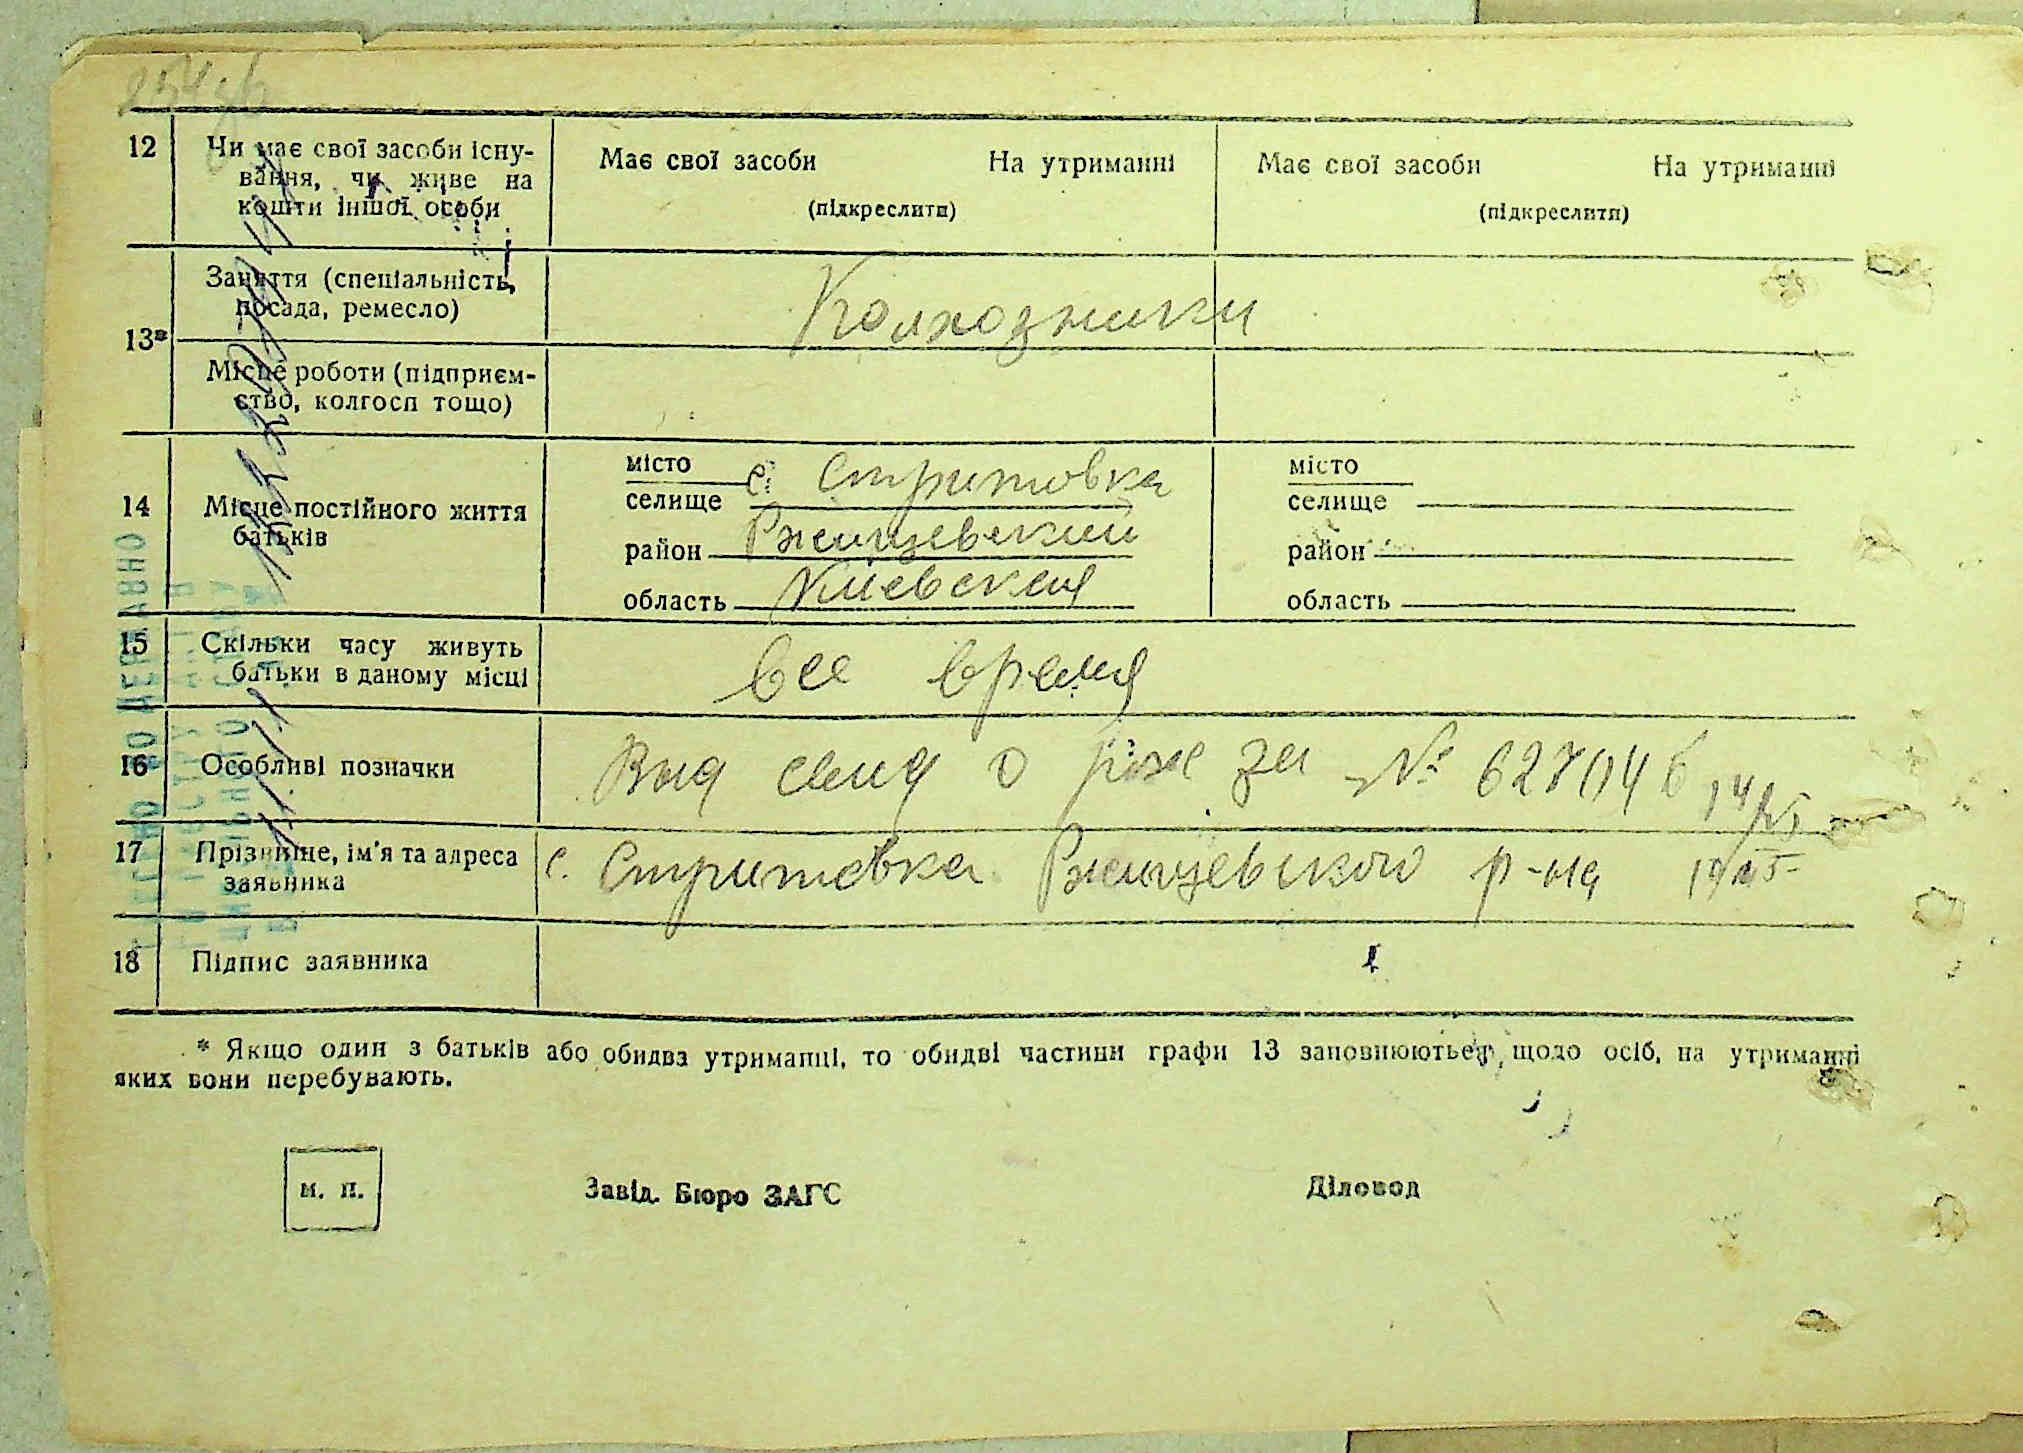 12 Чи має свої засоби існу-
вання, чи живе на
кошти іншої особи
Має свої засоби На утриманні
(підкреслити)
Має свої засоби На утриманні
(підкреслити)
13*
Заняття (спеціальність,
посада, ремесло)
Колхозники
Місце роботи (підприєм-
ство, колгосп тощо)
14 Місце постійного життя
батьків
місто
селище с. Стритовка
район Ржищевский
область Киевская
місто
селище
район
область
15 Скільки часу живуть
батьки в даному місці
все время
16 Особливі позначки
Выд свид о рож за №
17 Прізвище, ім'я та адреса
заявника
с. Стритовка Ржищевского р-на
18 Підпис заявника
* Якщо один з батьків або обидва утриманці, то обидві частини графи 13 заповнюються щодо осіб, на утриманні
яких вони перебувають.
м. п.
Завід. Бюро ЗАГС
Діловод